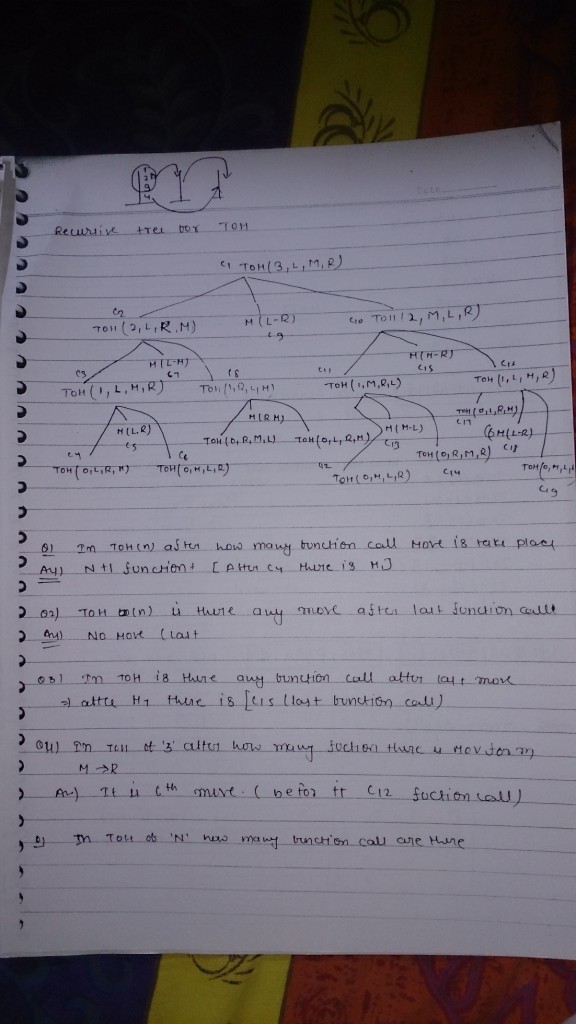 1
2
3
4
Recursive tree bor TOH
C1 TOH(3, L, M, R)
C2 TOH (2, L, R, M)
M (L-R)
C9
C10 TOH (2, M, L, R)
C3 TOH (1, L, M, R)
M(L-M)
C7
C8 TOH (1, R, L, M)
C11 TOH (1, M, R, L)
M(M-R)
C15
TOH (1, L, M, R)
M(L,R)
C5
M(R M)
M(M-L)
C13
TOH (0, L, R, M)
C17
M(L-R)
C18
C4 TOH (0, L, R, M)
C6 TOH (0, M, L, R)
TOH (0, R, M, L)
TOH (0, L, R, M)
C12 TOH (0, M, L, R)
TOH (0, R, M, R)
C14
TOH (0, M, L,
C19
Q1 Im TOH(n) after how many bunction call Move is take place
Ay) N+1 function+ [After C4 there is M1]
Q2) TOH (n) is there any move after last function call
Ay) No Move (Last
Q3) In TOH is there any bunction call after last move
⇒ after M7 there is [C15 (last bunction call)
Q4) In TOH of '3' after how many fuction there is Mov for m
M → R
An) It is 6th move. ( befor it C12 fuction call)
Q) In TOH ob 'N' how many bunction call are there